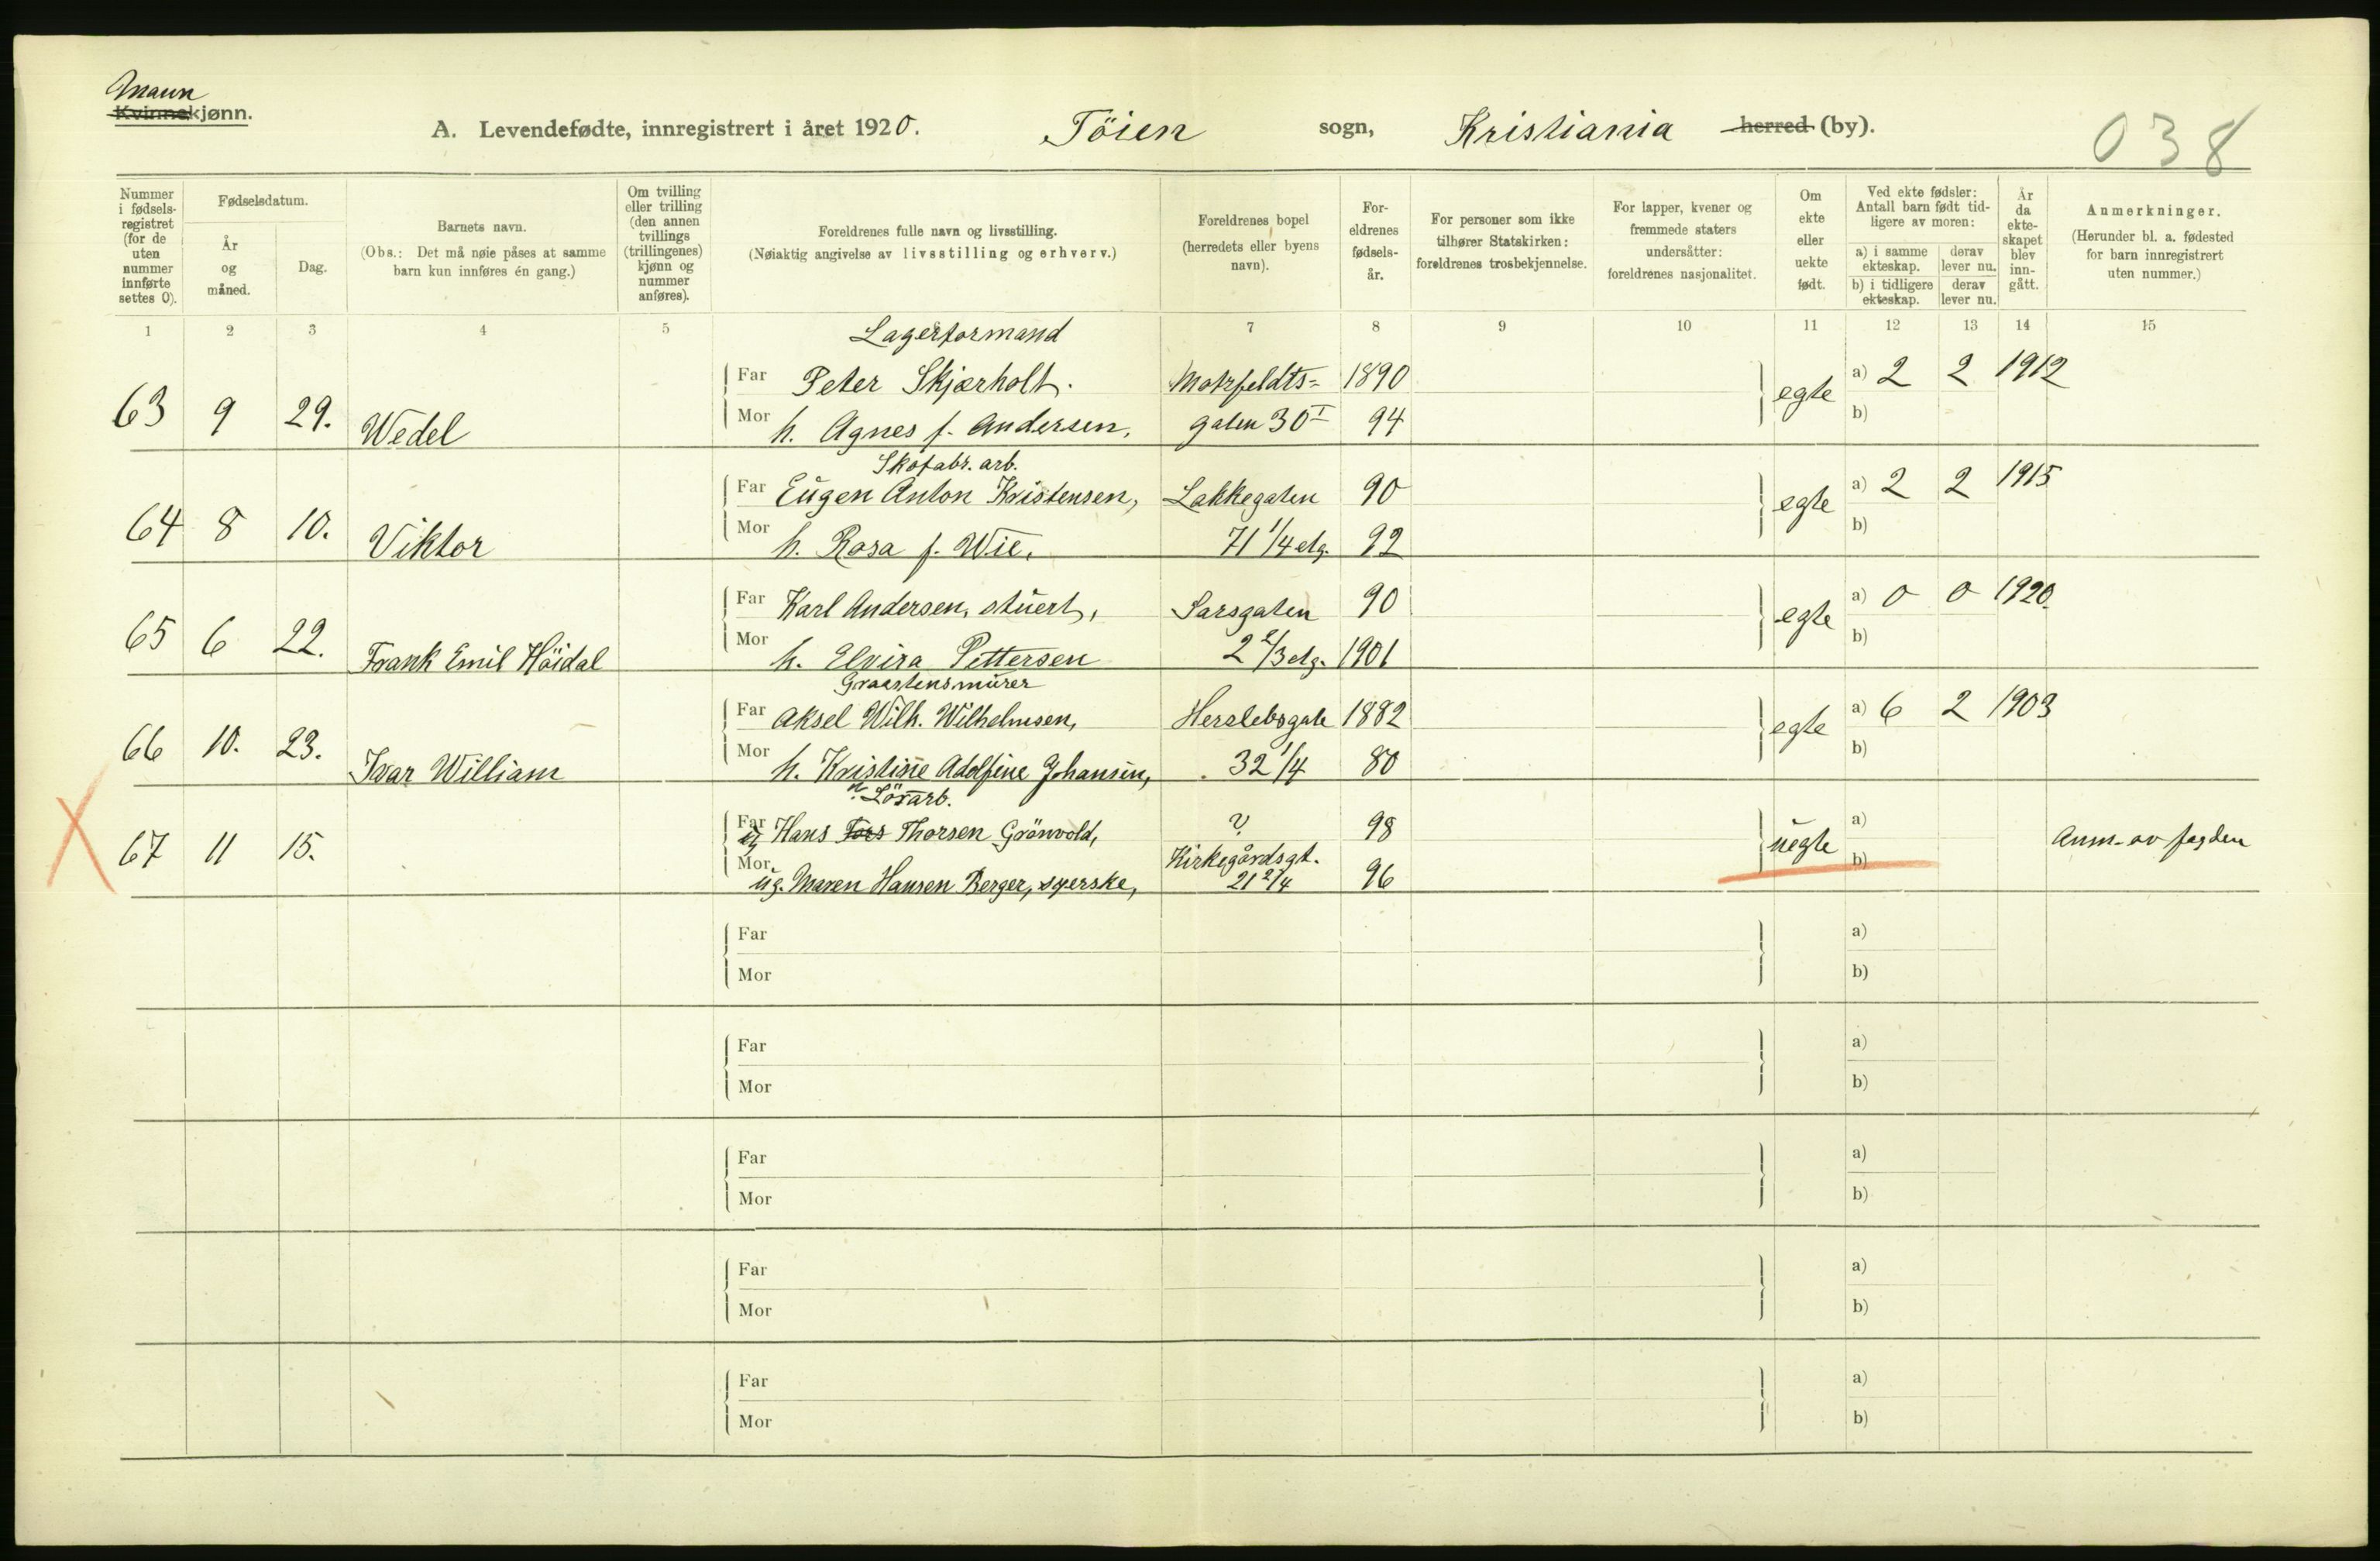 Mann
Kvinnekjønn.
A. Levendefødte, innregistrert i året 1920. Töien sogn, Kristiania herred (by). 038
Nummer i fødsels-registret (for de uten nummer innførte settes 0).
Fødselsdatum.
År og måned.
Dag.
Barnets navn.
(Obs.: Det må nøie påses at samme barn kun innføres én gang.)
Om tvilling eller trilling (den annen tvillings (trillingenes) kjønn og nummer anføres).
Foreldrenes fulle navn og livsstilling.
(Nøiaktig angivelse av livsstilling og erhverv.)
Foreldrenes bopel (herredets eller byens navn).
For-eldrenes fødsels-år.
For personer som ikke tilhører Statskirken: foreldrenes trosbekjennelse.
For lapper, kvener og fremmede staters undersåtter: foreldrenes nasjonalitet.
Om ekte eller uekte født.
Ved ekte fødsler: Antall barn født tid-ligere av moren:
a) i samme ekteskap. derav lever nu.
b) i tidligere ekteskap. derav lever nu.
År da ekte-skapet blev inn-gått.
Anmerkninger.
(Herunder bl. a. fødested for barn innregistrert uten nummer.)
1 2 3 4 5 7 8 9 10 11 12 13 14 15
Lagerformand
Far Peter Skjærholt. Motzfeldts= 1890 a) 2 2 1912
63 9 29. Wedel Mor h. Agnes f. Andersen. gaten 30 I 94 egte b)
Skofabr. arb.
Far Eugen Anton Kristensen, Lakkegaten 90 a) 2 2 1915
64 8 10. Viktor Mor h. Rosa f. Wie. 71 1/4 etg. 92 egte b)
Far Karl Andersen, stuert, Sarsgaten 90 a) 0 0 1920.
65 6 22. Frank Emil Höidal Mor h. Elvira Pettersen 2 2/3 etg. 1901 egte b)
Graastensmurer
Far Aksel Wilh. Wilhelmsen, Herslebsgate 1882 a) 6 2 1903
66 10. 23. Ivar William Mor h. Kristine Adolfine Johansen, 32 1/4 80 egte b)
Lösarb.
Far ug Hans Tors Thorsen Grönvold, ? 98 a)
67 11 15. Mor ug. Maren Hansen Berger, syerske, Kirkegårdsgt. 21 2/4 96 uegte b) Anm. av fogden
Far a)
Mor b)
Far a)
Mor b)
Far a)
Mor b)
Far a)
Mor b)
Far a)
Mor b)